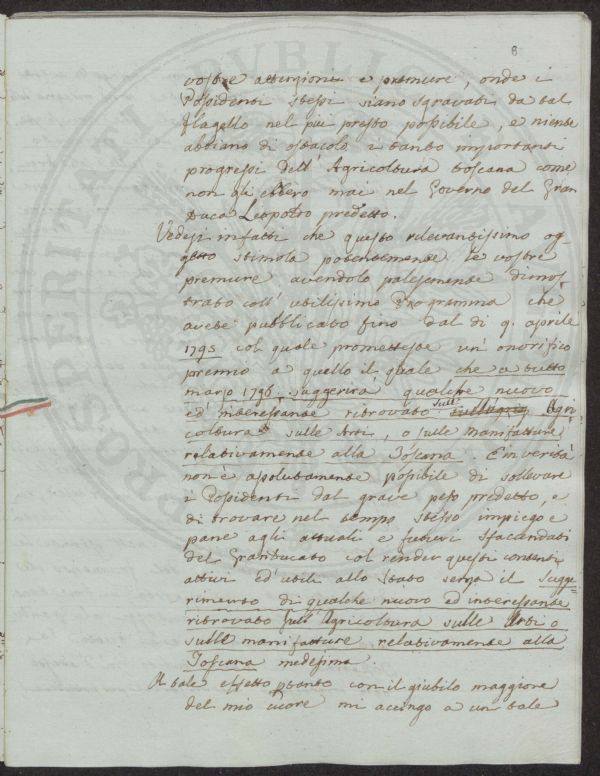 8
vostre attenzioni e premure, onde i
Possidenti stessi siano sgravati da tal
flagello nel più presto possibile, e niente
abbiano di ostacolo i tanto importanti
progressi dell' Agricoltura toscana come
non gli ebbero mai nel Governo del Gran
Duca Leopoldo predetto.
Vedesi infatti che questo rilevantissimo og-
getto stimola potentemente le vostre
premure avendolo palesemente dimos
trato coll' utilissimo Programma che
avete pubblicato fino dal dì 9. aprile
1795 col quale promettesse un' onorifico
premio a quello il quale che a tutto
marzo 1796. suggerirà qualche nuovo
ed' interessante ritrovato sull' Agri
coltura sulle Arti, o sulle Manifatture
relativamente alla Toscana. E in verità
non è assolutamente possibile di sollevare
i Possidenti dal grave peso predetto, e
di trovare nel tempo stesso impiego e
pane agli attuali e futuri sfacendati
del GranDucato col render questi contenti
attivi ed' utili allo stato senza il sugge=
rimento di qualche nuovo ed interessante
ritrovato sull' Agricoltura sulle Arti o
sulle manifatture relativamente alla
Toscana medesima.
A tale effetto pertanto con il giubilo maggiore
del mio Cuore mi accingo a un tale
PROSPERITATI PVBLICAE